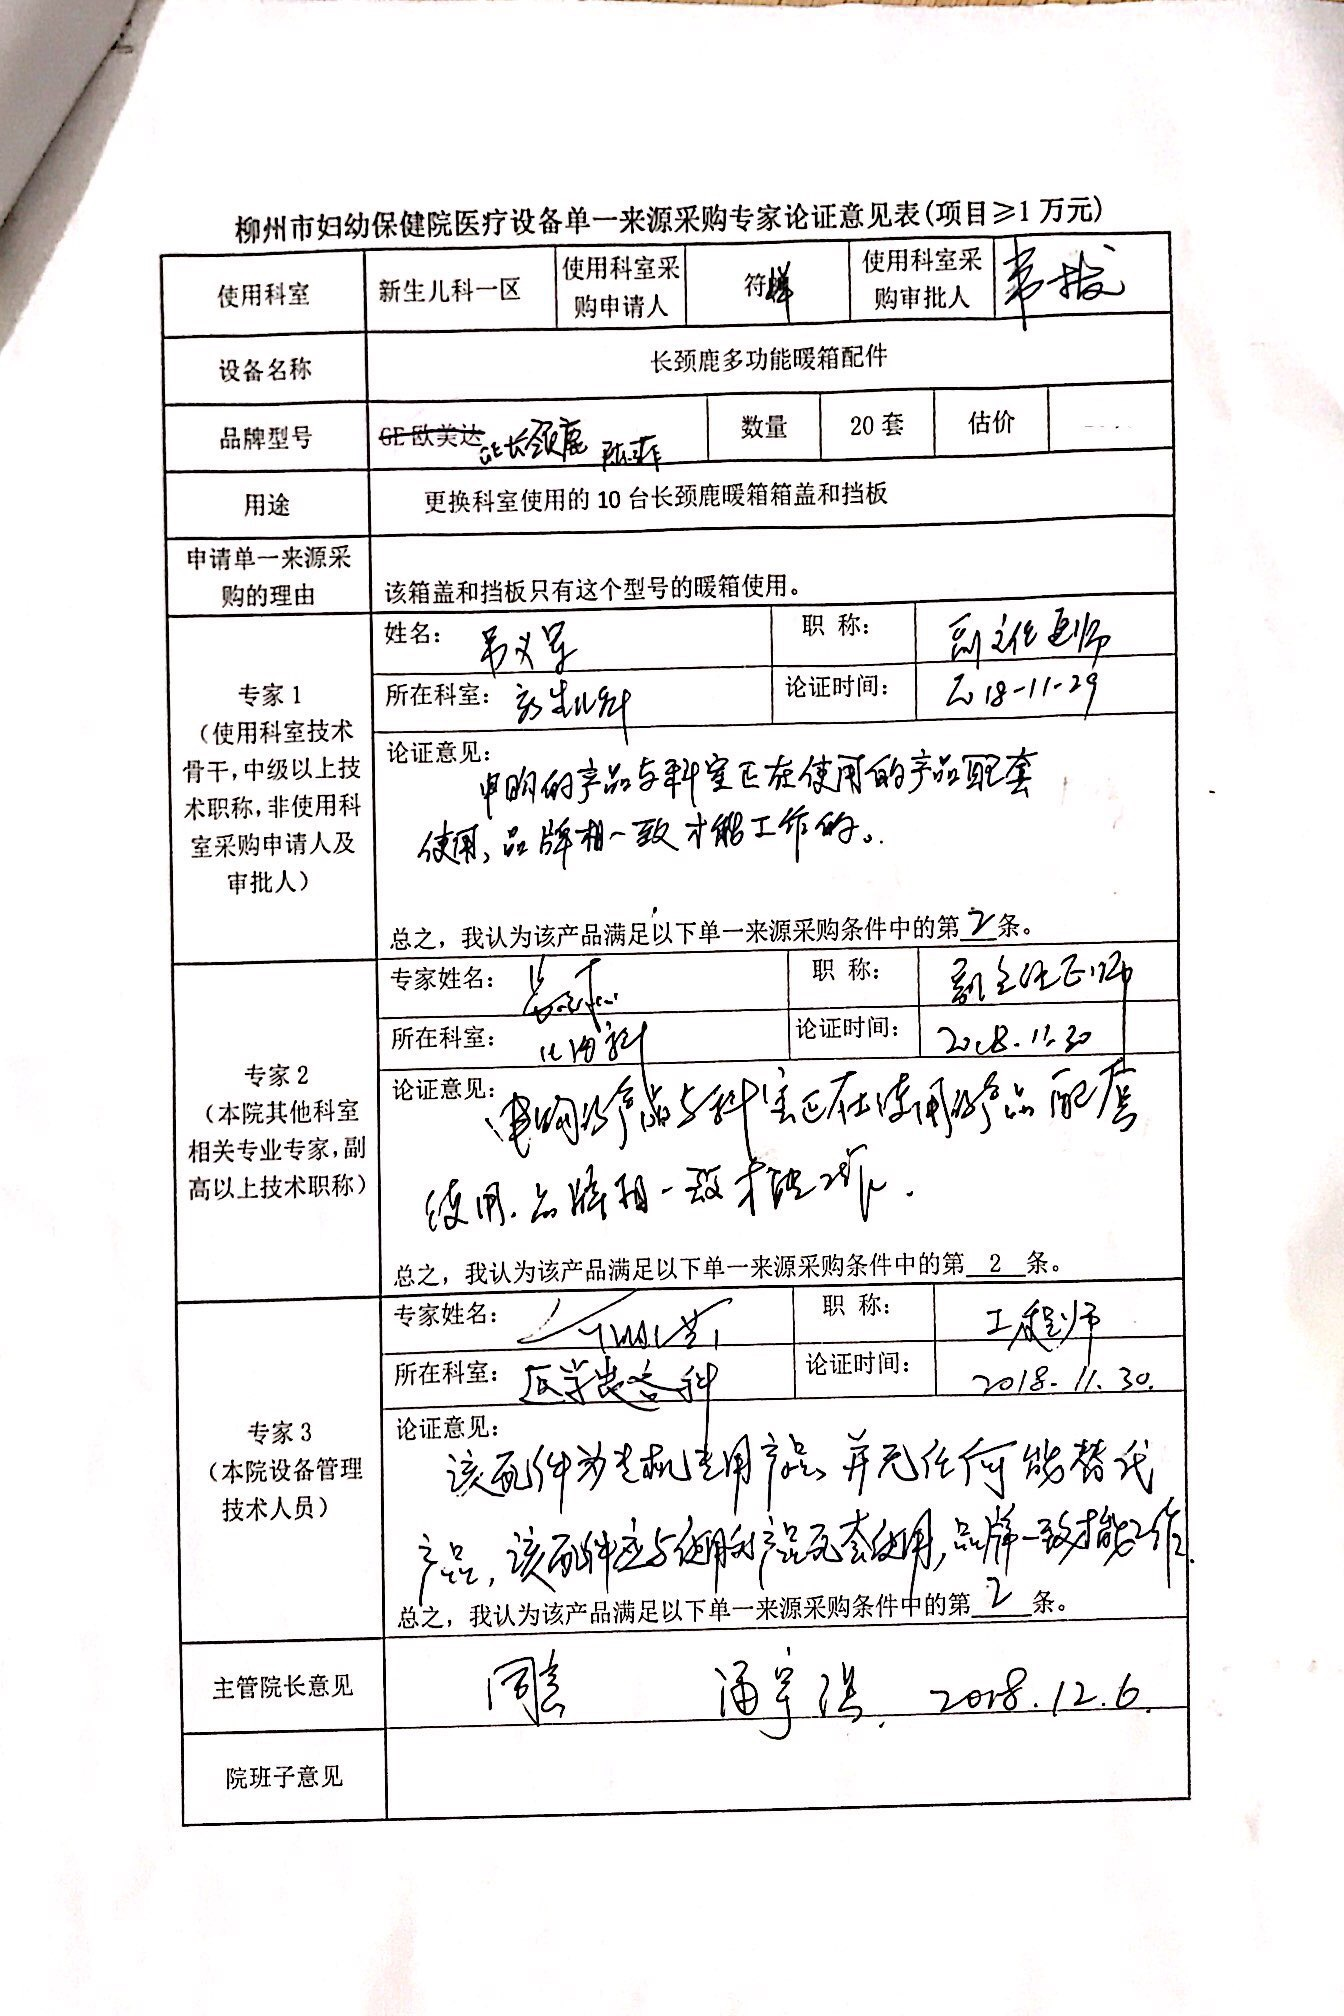 柳州市妇幼保健院医疗设备单一来源采购专家论证意见表(项目≥1万元)
使用科室 新生儿科一区 使用科室采购申请人 符 使用科室采购审批人
设备名称 长颈鹿多功能暖箱配件
品牌型号 GE欧美达 GE长颈鹿 数量 20套 估价
用途 更换科室使用的10台长颈鹿暖箱箱盖和挡板
申请单一来源采
购的理由
该箱盖和挡板只有这个型号的暖箱使用。
专家1
（使用科室技术
骨干，中级以上技
术职称，非使用科
室采购申请人及
审批人）
姓名： 职 称： 副主任医师
所在科室： 新生儿科 论证时间： 2018-11-29
论证意见：
申购的产品与科室正在使用的产品配套
使用，品牌相一致才能工作的。
总之，我认为该产品满足以下单一来源采购条件中的第2条。
专家2
（本院其他科室
相关专业专家，副
高以上技术职称）
专家姓名： 职 称： 副主任医师
所在科室： 论证时间： 2018.11.30
论证意见：
申购的产品与科室正在使用的产品配套
使用，品牌相一致才能工作.
总之，我认为该产品满足以下单一来源采购条件中的第2条。
专家3
（本院设备管理
技术人员）
专家姓名： 职 称： 工程师
所在科室： 医学装备科 论证时间： 2018.11.30.
论证意见：
该配件为专机专用产品，并无任何能替代
产品，该配件应与使用的产品配套使用，品牌一致才能工作.
总之，我认为该产品满足以下单一来源采购条件中的第2条。
主管院长意见 同意 2018.12.6.
院班子意见